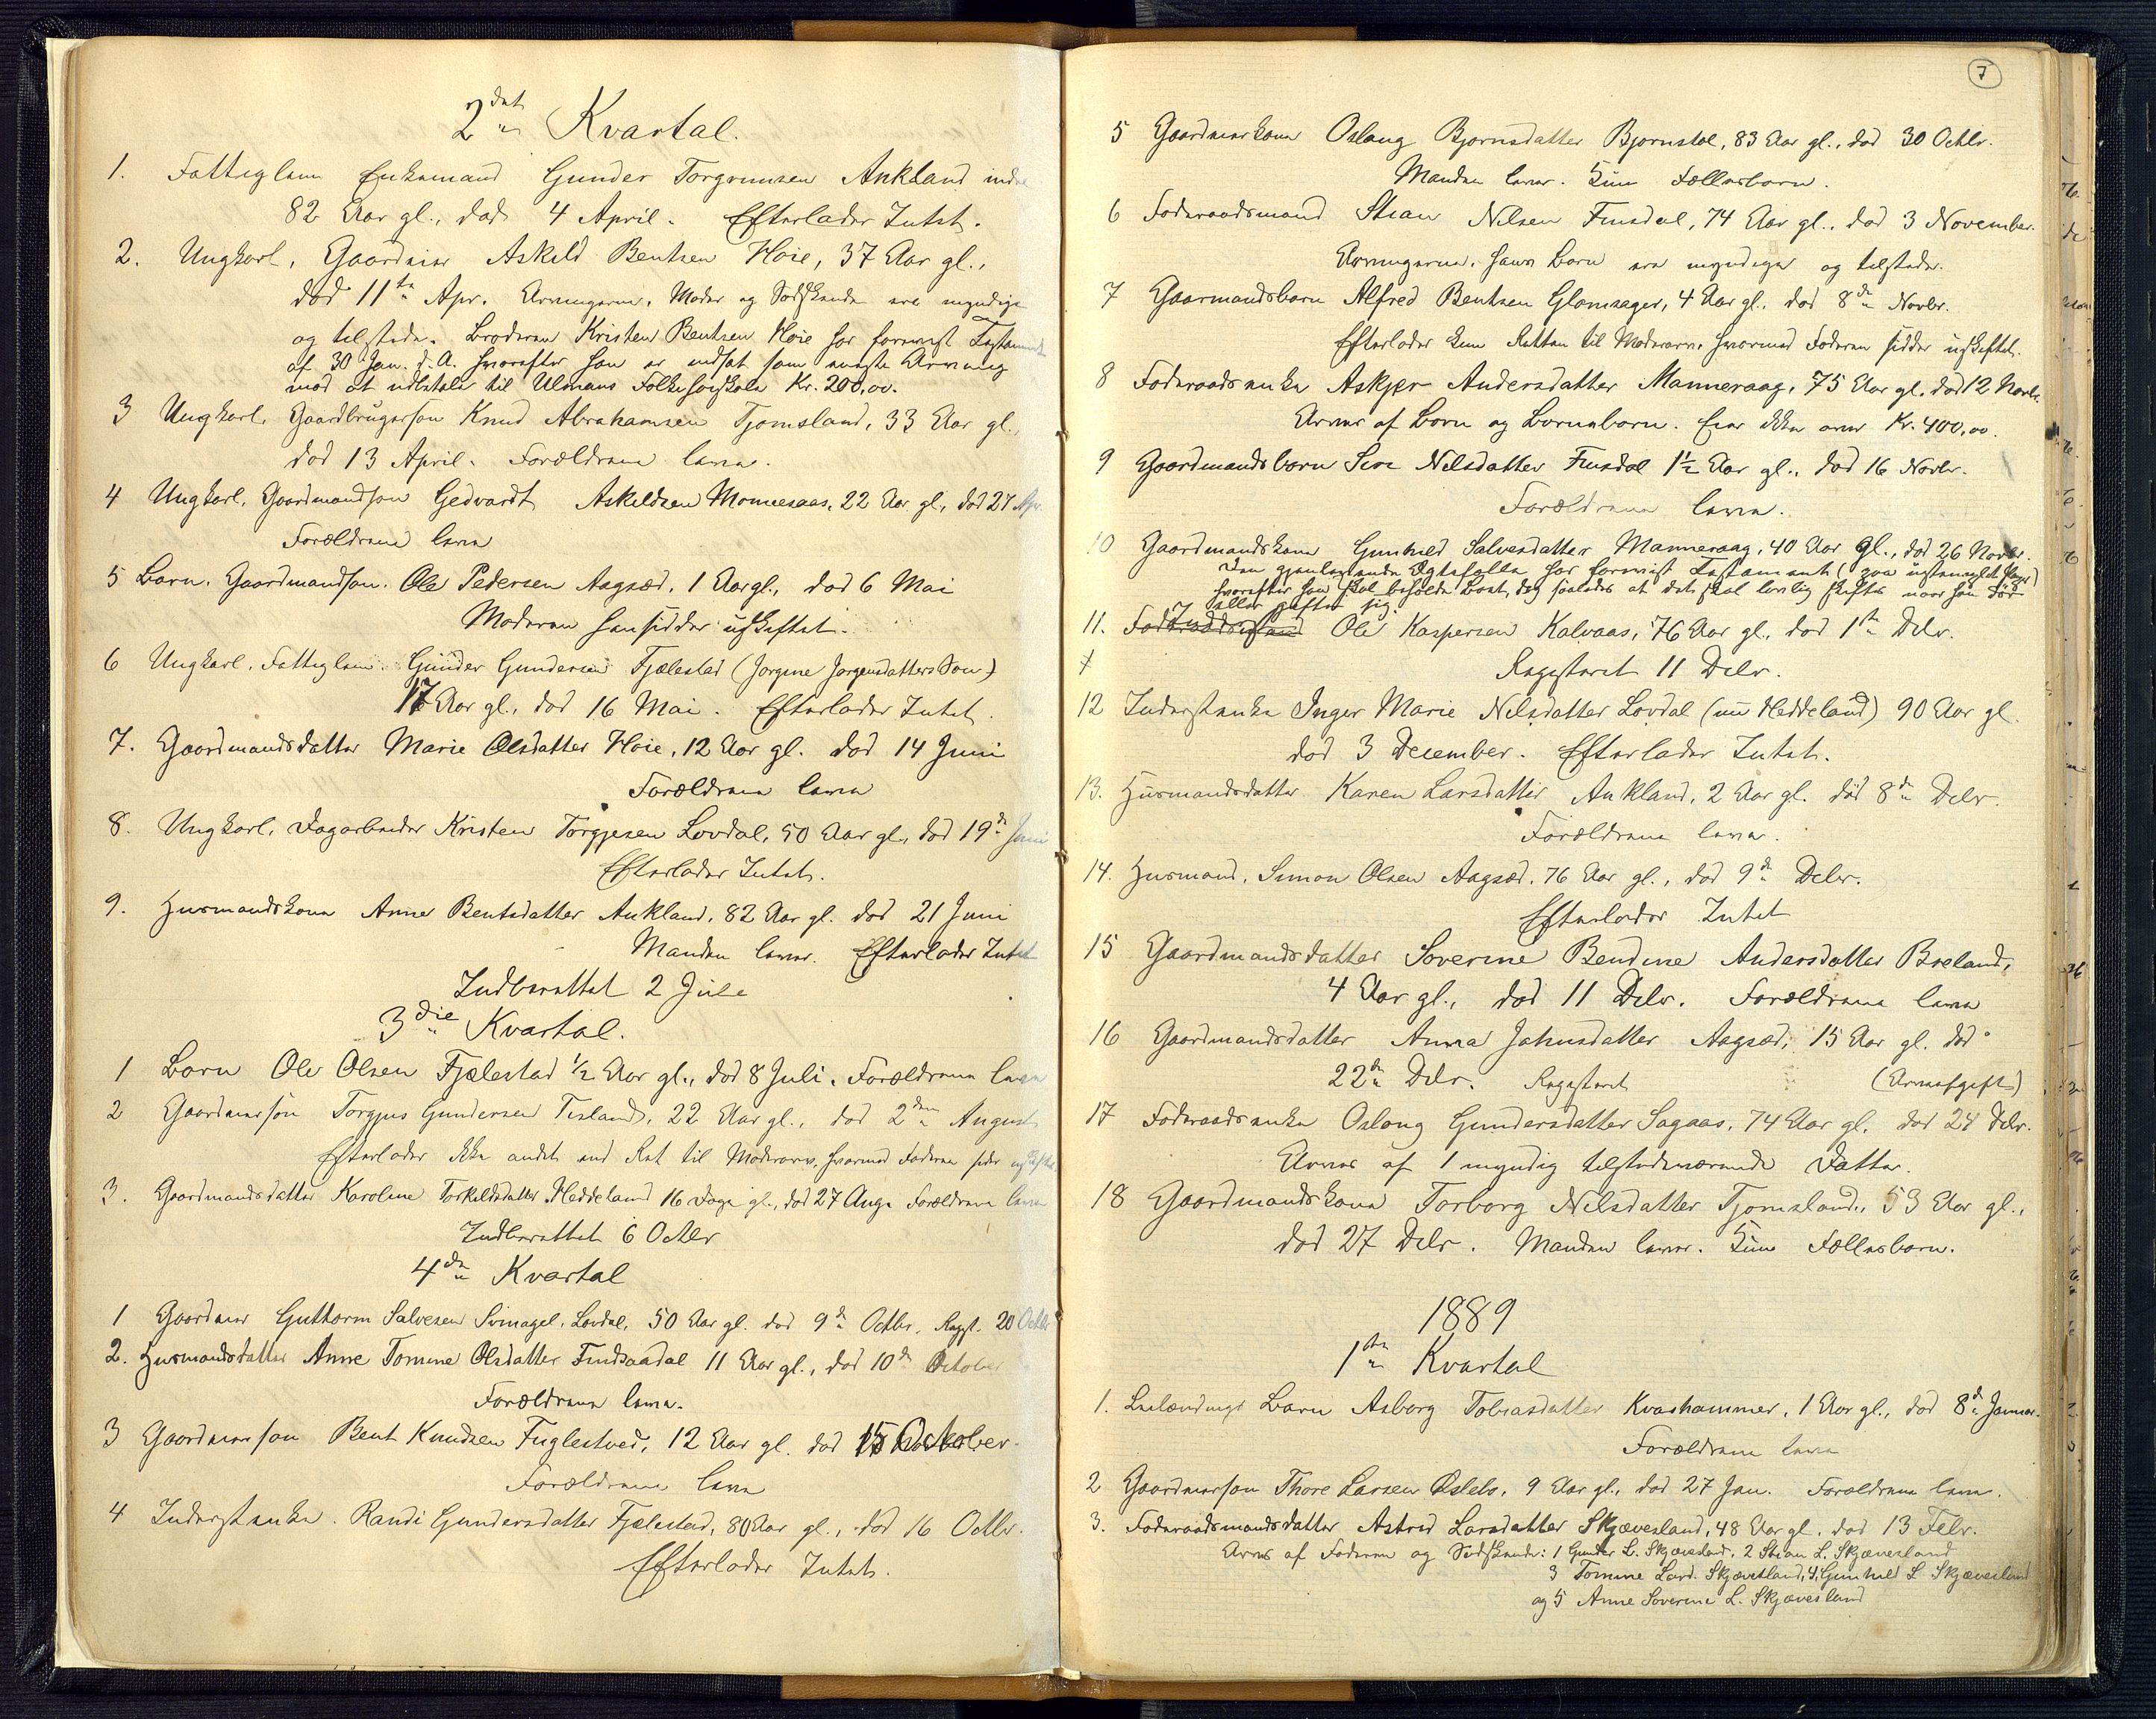 2det Kvartal.
1. Fattiglem Enkemand Gunder Torgrimsen Aukland indre
82 Aar gl., død 4 April. Efterlader Intet.
2. Ungkarl, Gaardeier Askild Bentsen Høie, 37 Aar gl.,
død 11te Apr. Arvingerne, Moder og Sødskende ere myndige
og tilstede. Broderen Kristen Bentsen Høie har forevist Testament
af 30 Jan. d.A. hvorefter han er indsat som eneste Arving
mod at udbetale til Ulmans Folkehøiskole Kr. 200,00.
3 Ungkarl, Gaardbrugersøn Knud Abrahamsen Tjomsland, 33 Aar gl.,
død 13 April. Forældrene leve.
4 Ungkarl, Gaardmandsøn Gedvardt Askildsen Monneraas, 22 Aar gl., død 27 Apr.
Forældrene leve
5 Barn. Gaardmandsøn. Ole Pedersen Aagsæd, 1 Aar gl., død 6 Mai
Moderen hensidder uskiftet.
6 Ungkarl. Fattiglem. Gunder Gundersen Fjælestad (Jorgine Jorgensdatters Søn)
17 Aar gl., død 16 Mai. Efterlader Intet.
7. Gaardmandsdatter Marie Olsdatter Høie, 12 Aar gl. død 14 Juni
Forældrene leve
8. Ungkarl, Dagarbeider Kristen Torgjesen Lovdal, 50 Aar gl., død 19de Juni
Efterlader Intet.
9. Husmandskone Anne Bentsdatter Aukland, 82 Aar gl. død 21 Juni
Manden lever. Efterlader Intet
Indberettet 2 Juli
3die Kvartal.
1 Barn Ole Olsen Fjælestad ½ Aar gl., død 8 Juli. Forældrene leve
2 Gaardeiersøn Torgjus Gundersen Tisland, 22 Aar gl., død 2den August
Efterlader ikke andet end Ret til Modrearv, hvormed Faderen sider uskiftet
3. Gaardmandsdatter Karoline Torkeldsdatter Heddeland 16 Dage gl., død 27 Aug. Forældrene leve
Indberettet 6 Octbr
4de Kvartal
1 Gaardeier Guttorm Salvesen Lovdal, 50 Aar gl. død 9de Octbr. Regst. 20 Octbr
2. Husmandsdatter Anne Tomine Olsdatter Findsaadal 11 Aar gl., død 10de October
Forældrene leve.
3 Gaardeiersøn Bent Knudsen Fuglestved, 12 Aar gl. død 15 October.
Forældrene leve
4 Inderstenke. Randi Gundersdatter Fjælestad, 80 Aar gl., død 16 Octbr.
Efterlader Intet.
7
5 Gaardeierkone Oslaug Bjornsdatter Bjornstøl, 83 Aar gl., død 30 Octbr.
Manden lever. Kun Fællesbørn.
6 Føderaadsmand Stian Nilsen Finsdal, 74 Aar gl., død 3 November.
Arvingerne, hans Børn ere myndige og tilstede.
7 Gaarmandsbarn Alfred Bentsen Glomsager, 4 Aar gl. død 8de Novbr.
Efterlader kun Retten til Modrearv, hvormed Faderen sidder uskiftet.
8 Føderaadsenke Askjer Andersdatter Manneraag, 75 Aar gl. død 12 Novb.
Arves af Børn og Børnebørn. Eier ikke over Kr. 400,00.
9 Gaardmandsbarn Sire Nilsdatter Finsdal 1½ Aar gl., død 16 Novbr.
Forældrene leve.
10 Gaardmandskone Gunhild Salvesdatter Manneraag, 40 Aar gl., død 26 Novbr.
Den gjenlevende Ægtefælle har forevist Testament (paa ustemplet Papir)
hvorefter han skal beholde Boet, dog saaledes at det skal lovlig skiftes naar han dør
eller gifter sig.
11. Ole Kaspersen Kalvaas, 76 Aar gl., død 1ste Dcbr.
Registeret 11 Dcbr.
12 Inderstenke Inger Marie Nilsdatter Lovdal (nu Heddeland) 90 Aar gl.
død 3 December. Efterlader Intet.
13. Husmandsdatter Karen Larsdatter Aukland, 2 Aar gl. død 8de Dcbr.
Forældrene leve.
14. Husmand, Simon Olsen Aagsæd, 76 Aar gl., død 9de Dcbr.
Efterlader Intet
15 Gaardmandsdatter Soverine Bendine Andersdatter Breland,
4 Aar gl., død 11 Dcbr. Forældrene leve
16 Gaardmandsdatter Anna Jahnsdatter Aagsæd, 15 Aar gl. død
22de Dcbr. Registeret (Arveafgift)
17 Føderaadsenke Oslaug Gundersdatter Sagaas, 74 Aar gl. død 24 Dcbr.
Arves af 1 myndig tilstedeværende Datter.
18 Gaardmandskone Torborg Nilsdatter Tjomsland, 53 Aar gl.,
død 27 Dcbr. Manden lever. Kun Fællesbørn.
1889
1ste Kvartal
1. Leilændings Barn Asborg Tobiasdatter Kvashammer, 1 Aar gl., død 8de Januar.
Forældrene leve
2 Gaardeiersøn Thore Larsen Øslebø, 9 Aar gl., død 27 Jan. Forældrene leve.
3. Føderaadsmandsdatter Astrid Larsdatter Skjævesland, 48 Aar gl. død 13 Febr.
Arves af Faderen og Sødskende: 1 Gunder L. Skjævesland, 2 Stian L. Skjævesland
3 Tomine Larsd. Skjævesland, 4, Gunhild L Skjævesland
og 5 Anne Soverine L. Skjævesland